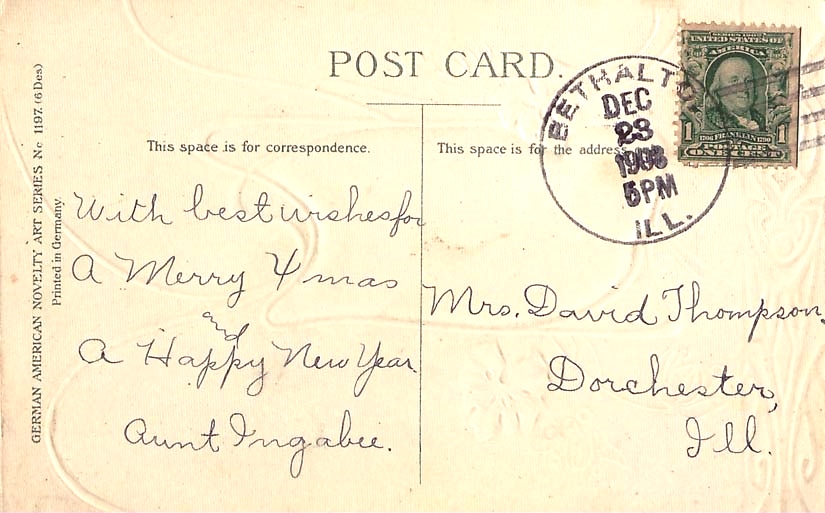 POST CARD.
GERMAN AMERICAN NOVELTY ART SERIES No 1197. (6 Des)
Printed in Germany.
This space is for correspondence.
This space is for the address
With best wishes for
A Merry Xmas
and
A Happy New Year
Aunt Ingabee.
BETHALTO
DEC
23
1908
5PM
ILL.
SERIES 1902
UNITED STATES OF
AMERICA
1 1706 FRANKLIN 1790 1
POSTAGE
ONE CENT
Mrs. David Thompson,
Dorchester,
Ill.